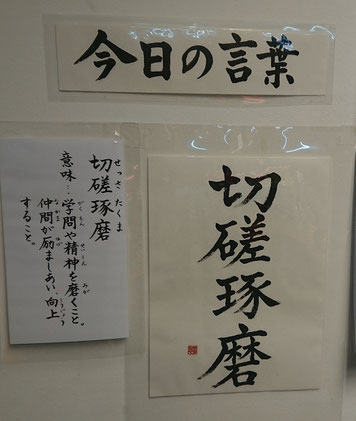 今日の言葉
切磋琢磨
せっさたくま
切磋琢磨
意味：学問や精神を磨くこと。
仲間が励ましあい、向上
すること。